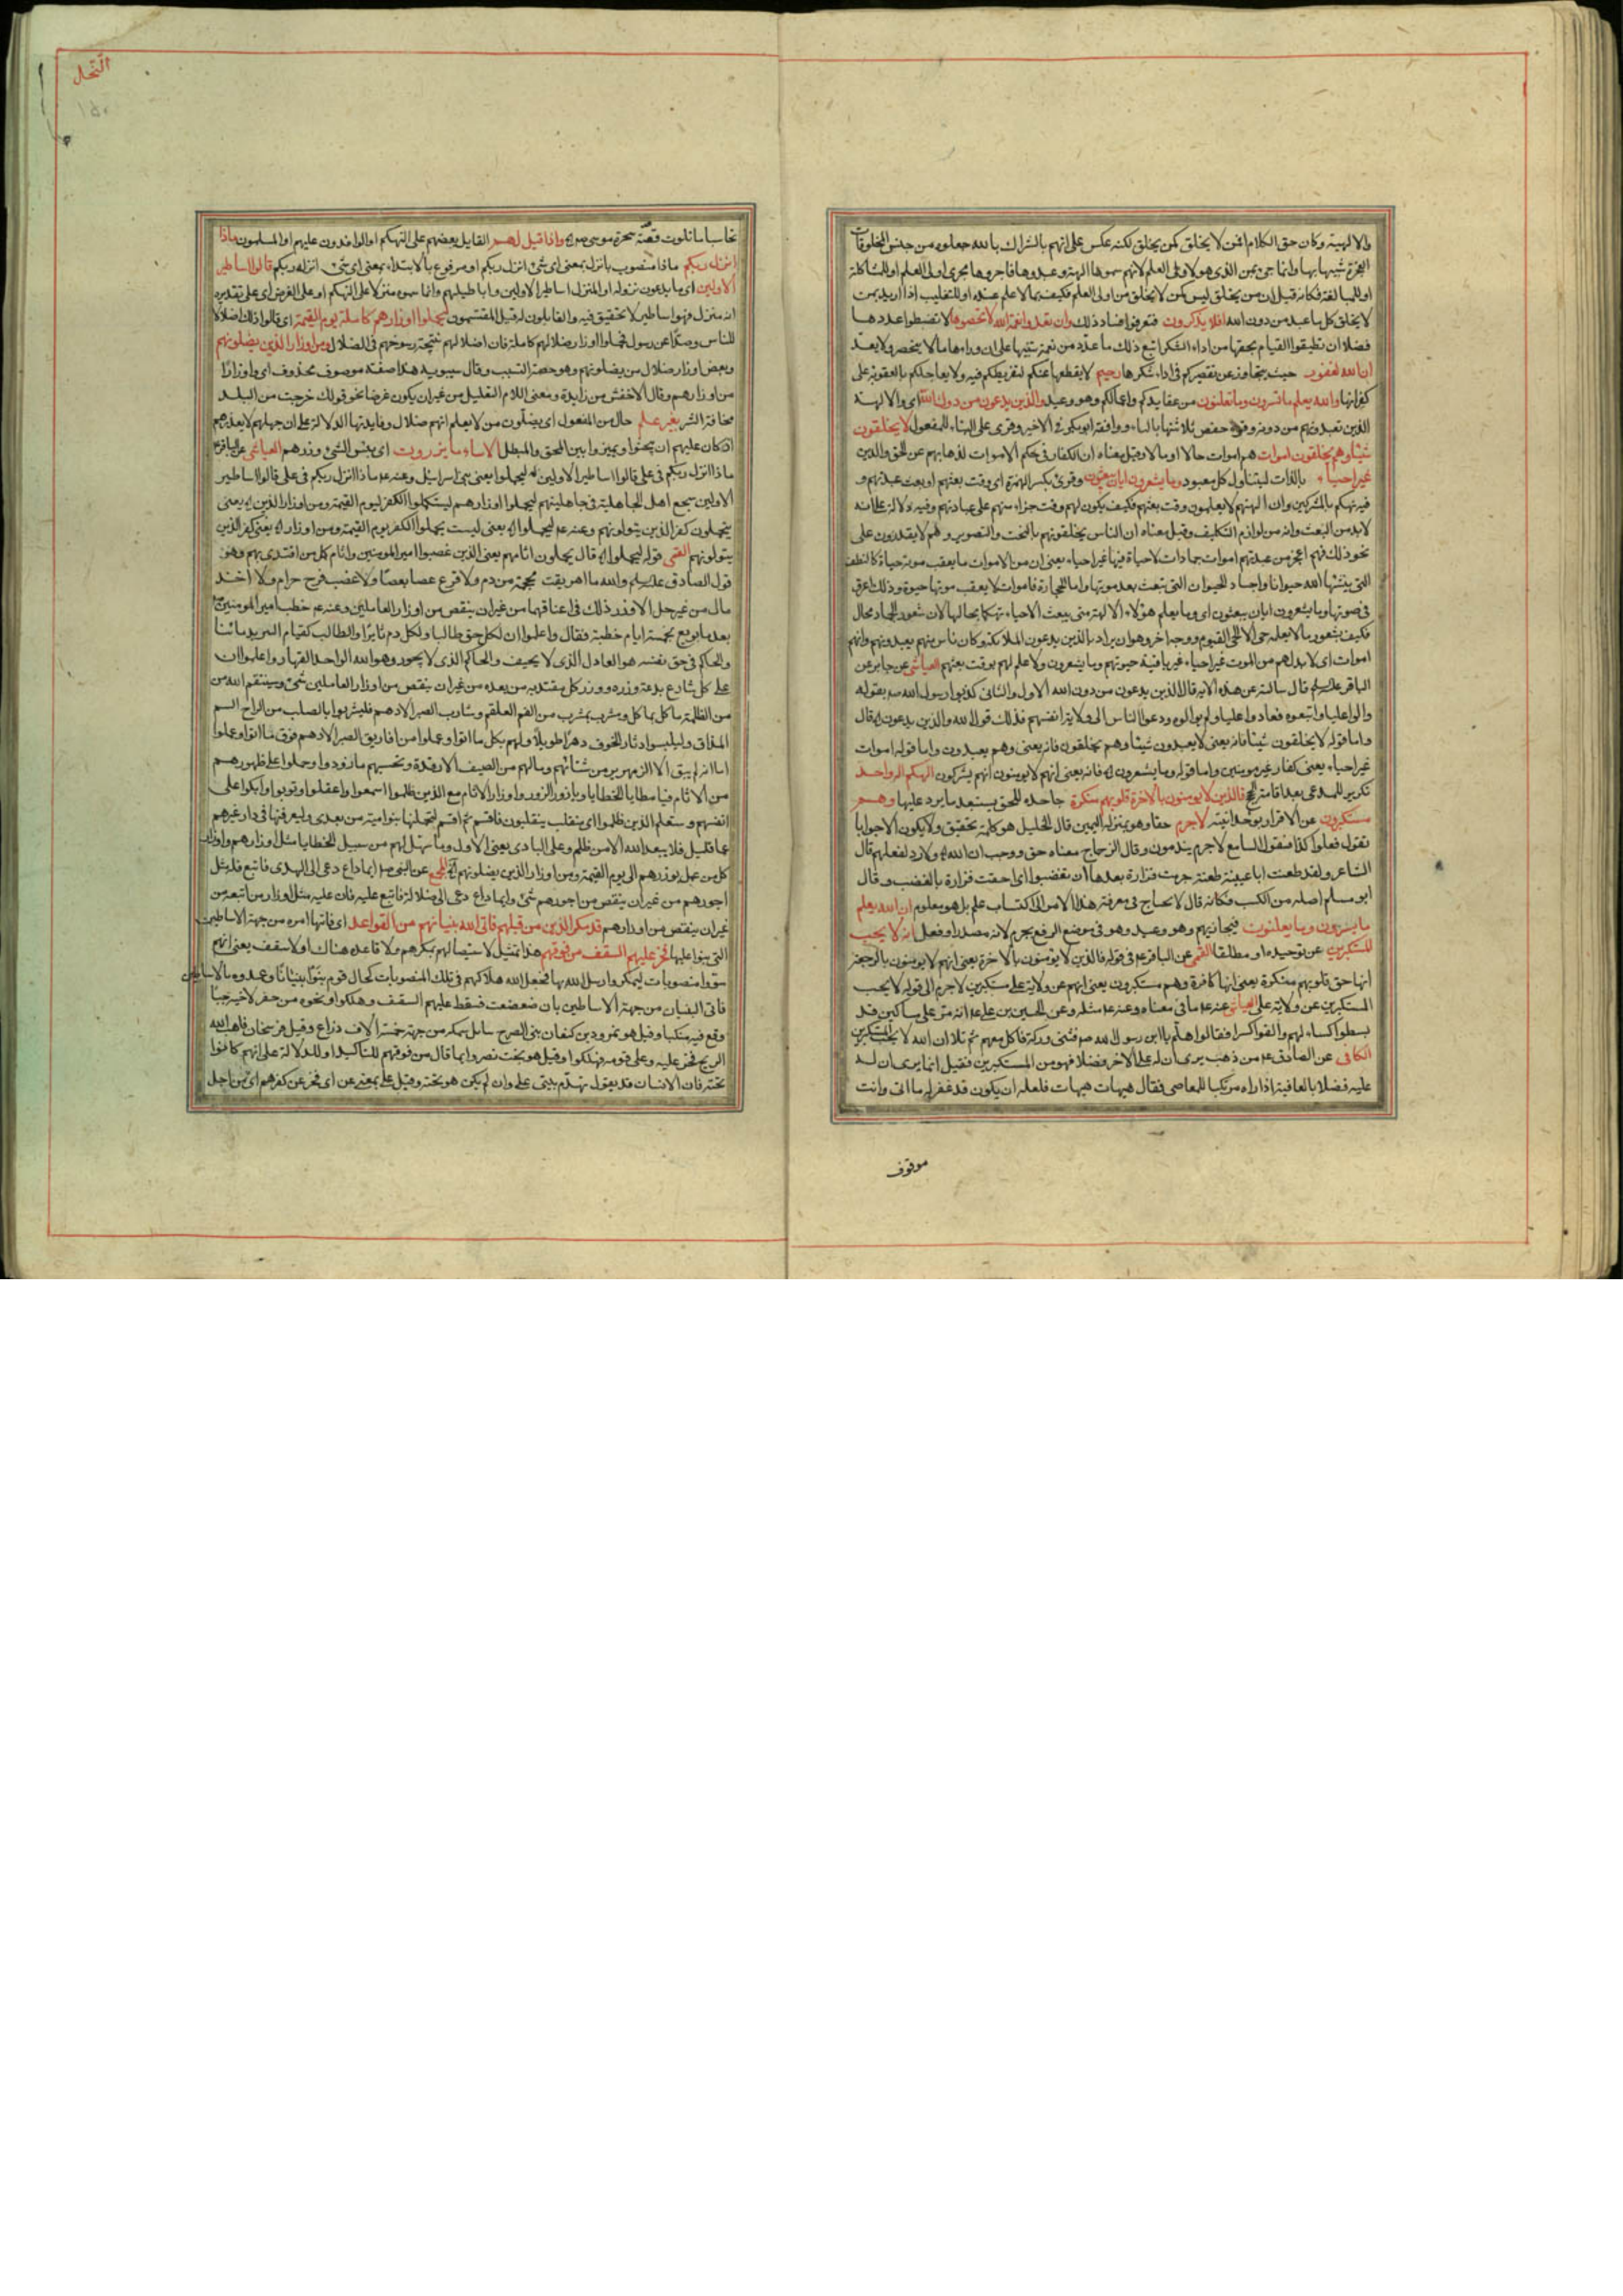 والالهية وكان حق الكلام افمن لا يخلق كمن يخلق لكنه عكس على انهم بالشراك بالله جعلوه من جنس المخلوقات
العجزة شبيها بها وانما جئ بمن الذى هو لاولى العلم لانهم سموها الهة وعبدوها فاجروها مجرى اولى العلم او للمشاكلة
او للمبالغة فكانه قيل ان من يخلق ليس كمن لا يخلق من اولى العلم فكيف بما لا علم عنده او للتغليب اذا اريد بمن
لا يخلق كل ما عبد من دون الله افلا يذكرون فتعرفوا فساد ذلك وان تعدوا نعمة الله لا تحصوها لا تضبطوا عددها
فضلا ان تطيقوا القيام بحقها من اداء الشكر اتبع ذلك ما عدد من نعمه تنبيها على ان وراءها ما لا ينحصر ولا يعد
ان الله لغفور حيث يتجاوز عن تقصيركم فى اداء شكرها رحيم لا يقطعها عنكم لتفريطكم فيه ولا يعاجلكم بالعقوبة على
كفرانها والله يعلم ما تسرون وما تعلنون من عقايدكم واعمالكم وهو وعيد والذين يدعون من دون الله اى والالهة
الذين تعبدونهم من دونه وقرأ حفص ثلاثتها بالياء ووافقه ابوبكر فى الاخير وقرى على البناء للمفعول لا يخلقون
شيئا وهم يخلقون اموات هم اموات حالا او مالا وقيل معناه ان الكفار فى حكم الاموات لذهابهم عن الحق والدين
غير احياء بالذات ليتناول كل معبود وما يشعرون ايان يبعثون وقرئ بكسر الهمزة اى وقت بعثهم او بعث عبدتهم و
فيه تهكم بالمشركين وان الهتهم لا يعلمون وقت بعثهم فكيف يكون لهم وقت جزاء منهم على عبادتهم وفيه دلالة على انه
لابد من البعث وانه من لوازم التكليف وقيل معناه ان الناس يخلقونهم بالنحت والتصوير وهم لا يقدرون على
نحو ذلك فهم اعجز من عبدتهم اموات جمادات لا حياة فيها غير احياء يعنى ان من الاموات ما يعقب موته حياة كالنطف
التى ينشئها الله حيوانا واجساد الحيوان التى تبعث بعد موتها واما الحجارة فاموات لا يعقب موتها حيوة وذلك اعرق
فى موتها وما يشعرون ايان يبعثون اى وما يعلم هؤلاء الالهة متى يبعث الاحياء تهكما بحالها لان شعور الجماد محال
فكيف بشعور ما لا يعلمه حى الا الحى القيوم ووجه اخر وهو ان يراد بالذين يدعون الملائكة وكان ناس منهم يعبدونهم وانهم
اموات اى لابد لهم من الموت غير احياء غير باقية حيوتهم وما يشعرون ولا علم لهم بوقت بعثهم العياشى عن جابر عن
الباقر عليه السلم قال سالته عن هذه الاية قال الذين يدعون من دون الله الاول والثانى كذبوا رسول الله ص بقوله
والوا عليا واتبعوه فعادوا عليا ولم يوالوه ودعوا الناس الى ولاية انفسهم فذلك قول الله والذين يدعون اه قال
واما قوله لا يخلقون شيئا فانه يعنى لا يعبدون شيئا وهم يخلقون فانه يعنى وهم يعبدون واما قوله اموات
غير احياء يعنى كفار غير مومنين واما قوله وما يشعرون اه فانه يعنى انهم لا يومنون انهم يشركون الهكم اله واحد
تكرير للمدعى بعد اقامة الحجج فالذين لا يومنون بالاخرة قلوبهم منكرة جاحده للحق يستبعد ما يرد عليها وهم
مستكبرون عن الاقرار بوحدانيته لا جرم حقا وهو بمنزلة اليمين قال الخليل هو كلمة تحقيق ولا يكون الا جوابا
تقول فعلوا كذا فتقول السامع لا جرم يندمون وقال الزجاج معناه حق ووجب ان الله اه ولا رد لفعلهم قال
الشاعر ولقد طعنت ابا عيينة طعنة جرمت فزارة بعدها ان تغضبوا اى احقت فزارة بالغضب وقال
ابو مسلم اصله من الكسب فكانه قال لا يحتاج فى معرفة هذا الامر الى اكتساب علم بل هو معلوم ان الله يعلم
ما يسرون وما يعلنون فيجازيهم وهو وعيد وهو فى موضع الرفع بجرم لانه مصدر او فعل انه لا يحب
المستكبرين عن توحيده او مطلقا القمى عن الباقر ع فى قوله فالذين لا يؤمنون بالاخرة يعنى انهم لا يومنون بالرجعة
انها حق قلوبهم منكرة يعنى انها كافرة وهم مستكبرون يعنى انهم عن ولاية على مستكبرين لا جرم الى قوله لا يحب
المستكبرين عن ولاية على العياشى عنه ع ما فى معناه وعنه ع مثله وعن الحسين بن على ع انه مر على مساكين قد
بسطوا كساء لهم والقوا كسرا فقالوا هلم يا ابن رسول الله ص فثنى وركه فاكل معهم ثم تلا ان الله لا يحب المستكبرين
الكافى عن الصادق ع من ذهب يرى ان له على الاخر فضلا فهو من المستكبرين فقيل انما يرى ان له
عليه فضلا بالعافية اذا راه مرتكبا للمعاصى فقال هيهات هيهات فلعله ان يكون قد غفر له ما اتى وانت
موقوف
النحل
۱۵۰
تحاسب اما تلوت قصة سحرة موسى ص اه واذا قيل لهم القايل بعضهم على التهكم او الوافدون عليهم او المسلمون ماذا
انزل ربكم ماذا منصوب بانزل بمعنى اى شئ انزل ربكم او مرفوع بالابتداء بمعنى اى شئ انزله ربكم قالوا اساطير
الاولين اى ما يدعون نزوله او المنزل اساطير الاولين واباطيلهم وانما سموه منزلا على التهكم او على الفرض اى على تقدير
انه منزل فهو اساطير لا تحقيق فيه والقايلون له قيل المقتسمون ليحملوا اوزارهم كاملة يوم القيمة اى قالوا ذلك اضلالا
للناس وصدا عن رسول فحملوا اوزار ضلالهم كاملة فان اضلالهم نتيجة رسوخهم فى الضلال ومن اوزار الذين يضلونهم
وبعض اوزار ضلال من يضلونهم وهو حصة التسبب وقال سيبويه هذا صفة موصوف محذوف اى واوزارا
من اوزارهم وقال الاخفش من زايدة ومعنى اللام التعليل من غير ان يكون غرضا نحو قولك خرجت من البلد
مخافة الشر بغير علم حال من المفعول اى يضلون من لا يعلم انهم ضلال وفايدتها الدلالة على ان جهلهم لا يعذرهم
اذ كان عليهم ان يبحثوا ويميزوا بين المحق والمبطل الا ساء ما يزرون اى بئس الشئ وزرهم العياشى عن الباقر ع
ماذا انزل ربكم فى على قالوا اساطير الاولين اه ليحملوا يعنى بنى اسرائيل وعنه ع ماذا انزل ربكم فى على قالوا اساطير
الاولين سجع اهل الجاهلية فى جاهليتهم ليحملوا اوزارهم ليستكملوا الكفر ليوم القيمة ومن اوزار الذين اه يعنى
يتحملون كفر الذين يتولونهم وعنه ع ليحملوا اه يعنى ليست يحملوا الكفر يوم القيمة ومن اوزار اه يعنى كفر الذين
يتولونهم القمى قوله ليحملوا اه قال يحملون اثامهم يعنى الذين غصبوا امير المومنين واثام كل من اقتدى بهم وهو
قول الصادق عليه السلم والله ما اهريقت محجمة من دم ولا قرع عصا بعصا ولا غصب فرج حرام ولا اخذ
مال من غير حل الا وزر ذلك فى اعناقهما من غير ان ينقص من اوزار العاملين وعنه ع خطب امير المومنين ع
بعد ما بويع بخمسة ايام خطبة فقال واعلموا ان لكل حق طالبا ولكل دم ثايرا والطالب كقيام الثاير بدمائنا
والحاكم فى حق نفسه هو العادل الذى لا يحيف والحاكم الذى لا يجور وهو الله الواحد القهار واعلموا ان
على كل شارع بدعة وزره ووزر كل مقتد به من بعده من غير ان ينقص من اوزار العاملين شئ وسينتقم الله من
من الظلمة ماكل بماكل ومشرب بمشرب من لقم العلقم ومشارب الصبر الادهم فليشربوا بالصلب من الراح السم
المذاق وليلبسوا دثار الخوف دهرا طويلا ولهم بكل ما اتوا وعملوا من افاريق الصبر الادهم فوق ما اتوا وعملوا
اما انه لم يبق الا الزمهرير من شتائهم وما لهم من الصيف الا رقدة ويحسبهم ما زودوا وحملوا على ظهورهم
من الاثام فيا مطايا الخطايا ويا زور الزور واوزار الاثام مع الذين ظلموا اسمعوا واعقلوا وتوبوا وابكوا على
انفسهم وسيعلم الذين ظلموا اى منقلب ينقلبون فاقسم ثم اقسم لتحملنها بنو امية من بعدى وليعرفنها فى دار غيرهم
عما قليل فلا يبعد الله الا من ظلم وعلى البادى يعنى الاول وما سهل لهم من سبيل الخطايا مثل اوزارهم واوزار
كل من عمل بوزرهم الى يوم القيمة ومن اوزار الذين يضلونهم اه المجمع عن النبى ص ايما داع دعى الى الهدى فاتبع فله مثل
اجورهم من غير ان ينقص من اجورهم شئ وايما داع دعى الى ضلالة فاتبع عليه فان عليه مثل اوزار من اتبعه من
غير ان ينقص من اوزارهم قد مكر الذين من قبلهم فاتى الله بنيانهم من القواعد اى فاتيها امره من جهة الاساطين
التى بنوا عليها فخر عليهم السقف من فوقهم هذا تمثيل لاستيصالهم بمكرهم ولا قاعده هناك ولا سقف يعنى انهم
سووا منصوبات ليمكروا رسل الله بها فجعل الله هلاكهم فى تلك المنصوبات كحال قوم بنوا بنيانا وعمدوه بالاساطين
فاتى البنيان من جهة الاساطين بان ضعضعت فسقط عليهم السقف وهلكوا ونحوه من حفر لاخيه جبا
وقع فيه منكبا وقيل هو نمرود بن كنعان بنى الصرح ببابل سمكه من جهة خمسة الاف ذراع وقيل فرسخان فاهب الله
الريح فخر عليه وعلى قومه فهلكوا وقيل هو بخت نصر وانما قال من فوقهم للتاكيد او للدلالة على انهم كانوا
تحته فان الانسان قد يقول تهدم بيتى على وان لم يكن هو تحته وقيل على بمعنى عن اى فخر عن كفرهم اى من اجل